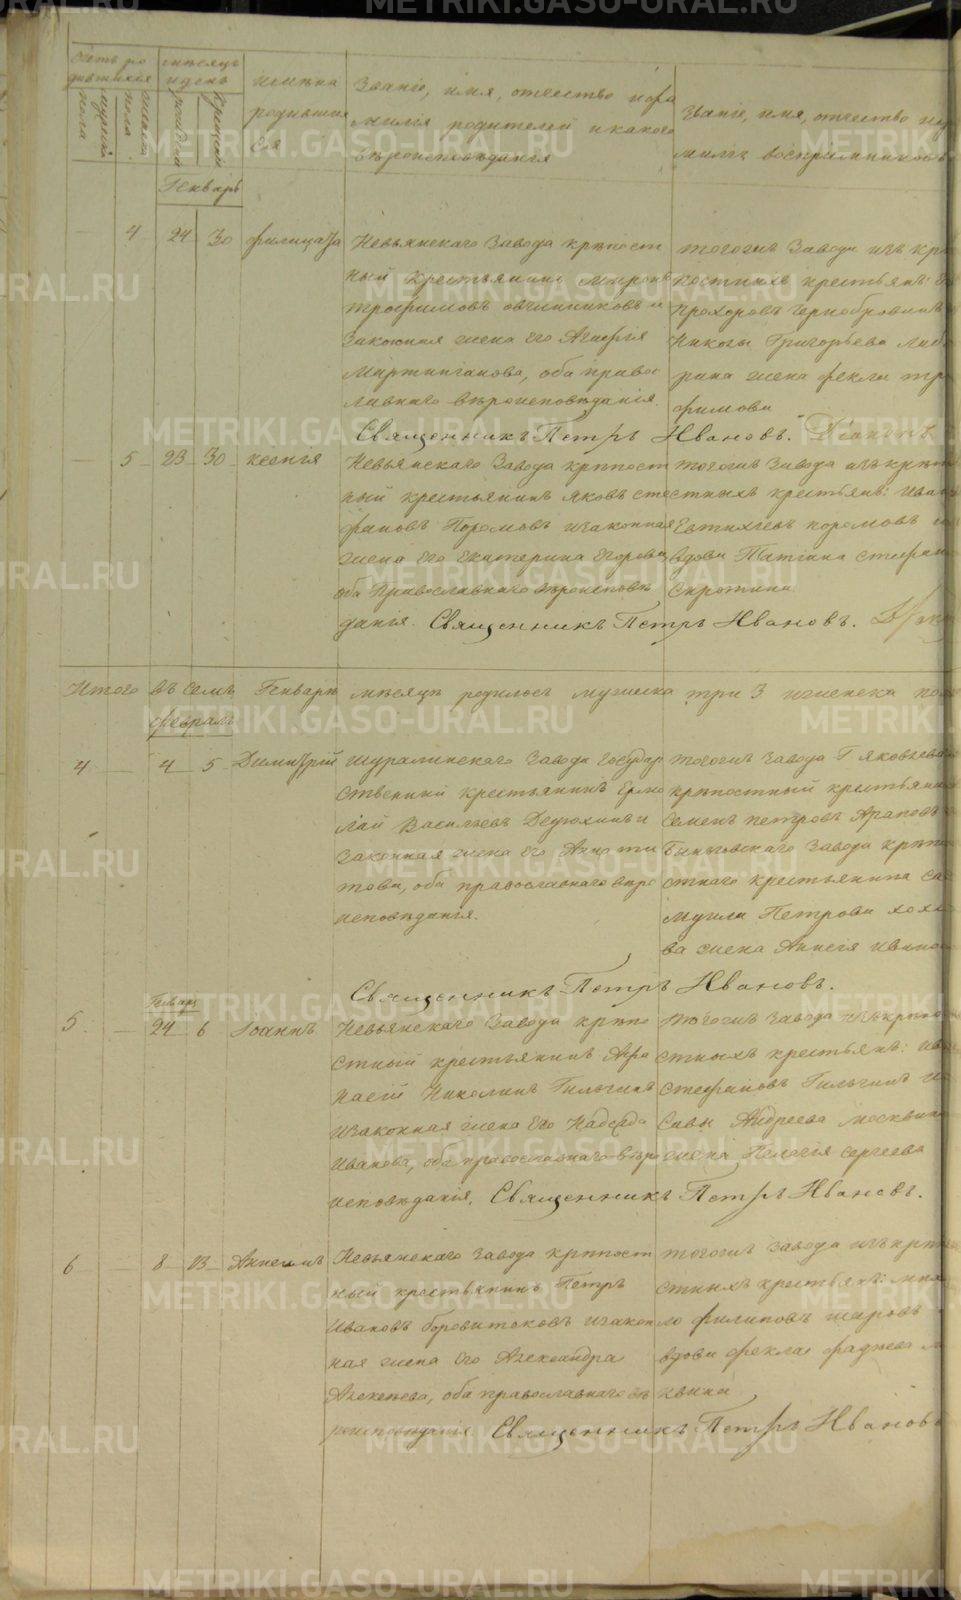 Счетъ ро
дившихся
мужеска
пола
женска
пола
мѣсяцъ
и день
рожденія
крещенія
имѣна
родивших
ся
Званіе, имя, отчество и фа
милія родителей и какого
вѣроисповѣданія
Званіе, имя, отчество и фа
милія воспріемниковъ
Генварь
4 24 30 фицата
Невьянскаго Завода крѣпост
ный крестьянинъ Миронъ
Трофимовъ овчинниковъ и
Законная жена Его Агафія
Мартиніанова, оба право
славнаго вѣроисповѣданія.
тогожъ Завода изъ крѣ
постныхъ крестьянъ:
Прохоровъ Чернобровинъ
Никиты Григорьева
рина жена Фекла тро
фимова
Священникъ Петръ Ивановъ. Діаконъ
5 23 30 ксенія
Невьянскаго Завода крѣпост
ный крестьянинъ Яковъ сте
фановъ Поромовъ и законная
жена Его Екатерина Егорова,
оба Православнаго вѣроисповѣ
данія.
тогожъ Завода изъ крѣпо
стныхъ крестьянъ: Иванъ
Евтихіевъ поромовъ и
вдова Татіана стефан
Сиротина
Священникъ Петръ Ивановъ.
Итого въ семъ Генварѣ мѣсяцѣ родилось мужеска три 3 и женска пола
февраль
4 4 5 Димитрій
Шуралинскаго Завода государ
ственный крестьянинъ Ермо
лай Васильевъ Дедюхинъ и
Законная жена Его Анна ти
това, оба православнаго вѣро
исповѣданія.
тогожъ Завода Г. Яковлева
крѣпостный крестьянинъ
Семенъ Петровъ Араповъ
Быньговскаго Завода крѣпо
стнаго крестьянина са
муила Петрова хохл
ва жена Анисія Ивано
Священникъ Петръ Ивановъ.
Генваря
5 24 6 Іоаннъ
Невьянскаго Завода крѣпо
стный крестьянинъ Афа
насій Николинъ Гильгинъ
и законная жена Его Надежда
Иванова, оба православнаго вѣро
исповѣданія.
тогожъ Завода изъ крѣпо
стныхъ крестьянъ: Ив
Стефановъ Гильгинъ и
Савы Андреева москвин
жена Пелагія Сергеева
Священникъ Петръ Ивановъ.
6 8 13
Невьянскаго Завода крѣпост
ный крестьянинъ Петръ
Ивановъ боровитоковъ и закон
ная жена Его Александра
Алексеева, оба православнаго вѣ
роисповѣданія.
тогожъ Завода изъ крѣпо
стныхъ крестьянъ: миха
ло филиповъ шировъ
вдова фекла фадѣева м
квина
Священникъ Петръ Ивановъ
METRIKI.GASO-URAL.RU